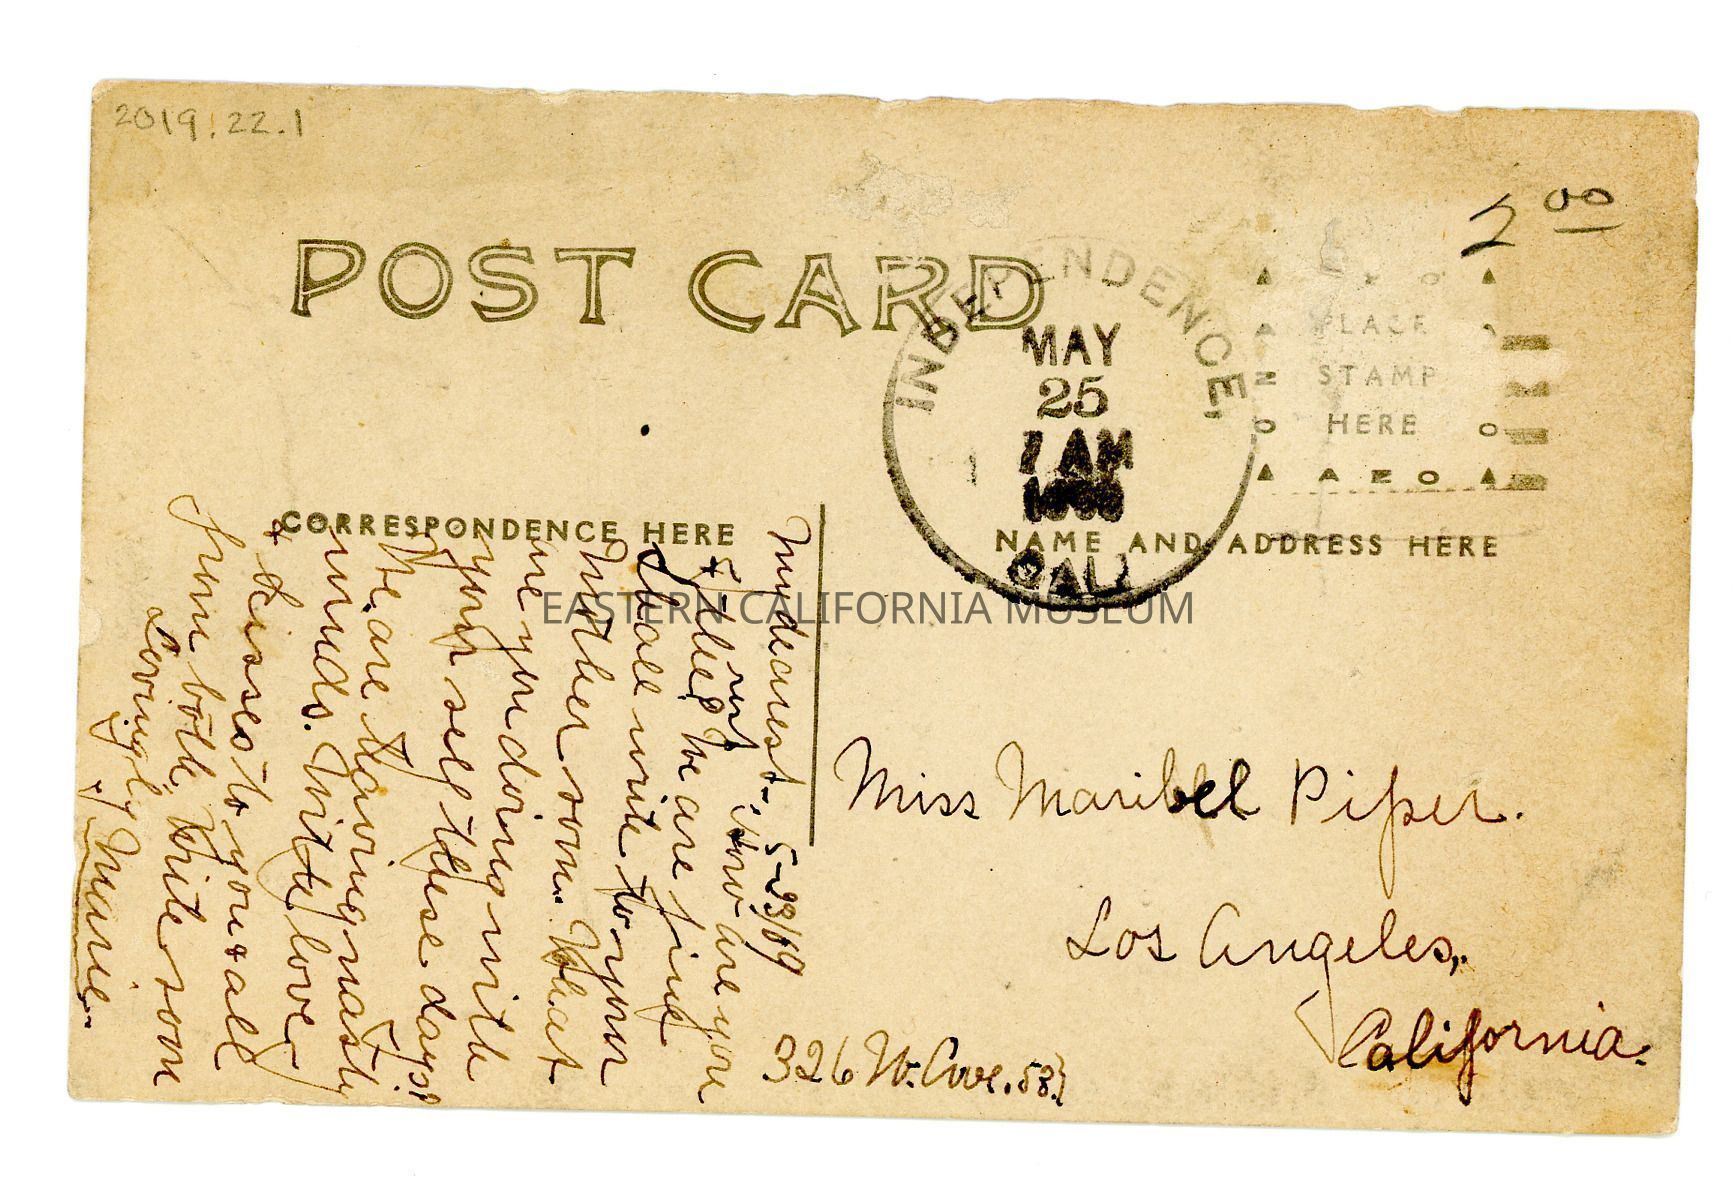 2019.22.1
2 00
POST CARD
INDEPENDENCE,
MAY
25
7 AM
CALI
PLACE
STAMP
HERE
AZO
CORRESPONDENCE HERE
NAME AND ADDRESS HERE
EASTERN CALIFORNIA MUSEUM
My dearest-: 5-23/
How are you
We are fine
shall write to your
Mother soon. What
are you doing with
your self these days?
We are having nasty
winds. With love
+ kisses to you + all
from both, Write soon
Lovingly Marie.
Miss Maribel Piper.
Los Angeles,
California.
326 W. Ave. 58